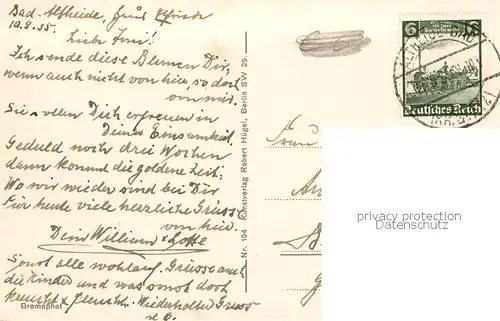 Bad-Altheide,
10.8.35.
Liebe Toni!
Ich sende diese Blumen Dir,
wenn auch nicht von hier, so doch
von mir.
Sie sollen Dich erfreuen in
Deiner Einsamkeit,
Geduld noch drei Wochen
dann kommt die goldene Zeit;
Wo wir wieder sind bei Dir
Für heute viele herzliche Grüsse
von hier.
Dein William & Lotte
Sonst alle wohlauf. Grüsse auch
die Kinder und was sonst doch
kreucht & fleucht. Wiederholter Gruss
Bromophot
Nr. 194 Kunstverlag Robert Hügel, Berlin SW 29.
6 6
Deutsches Reich
privacy protection
Datenschutz